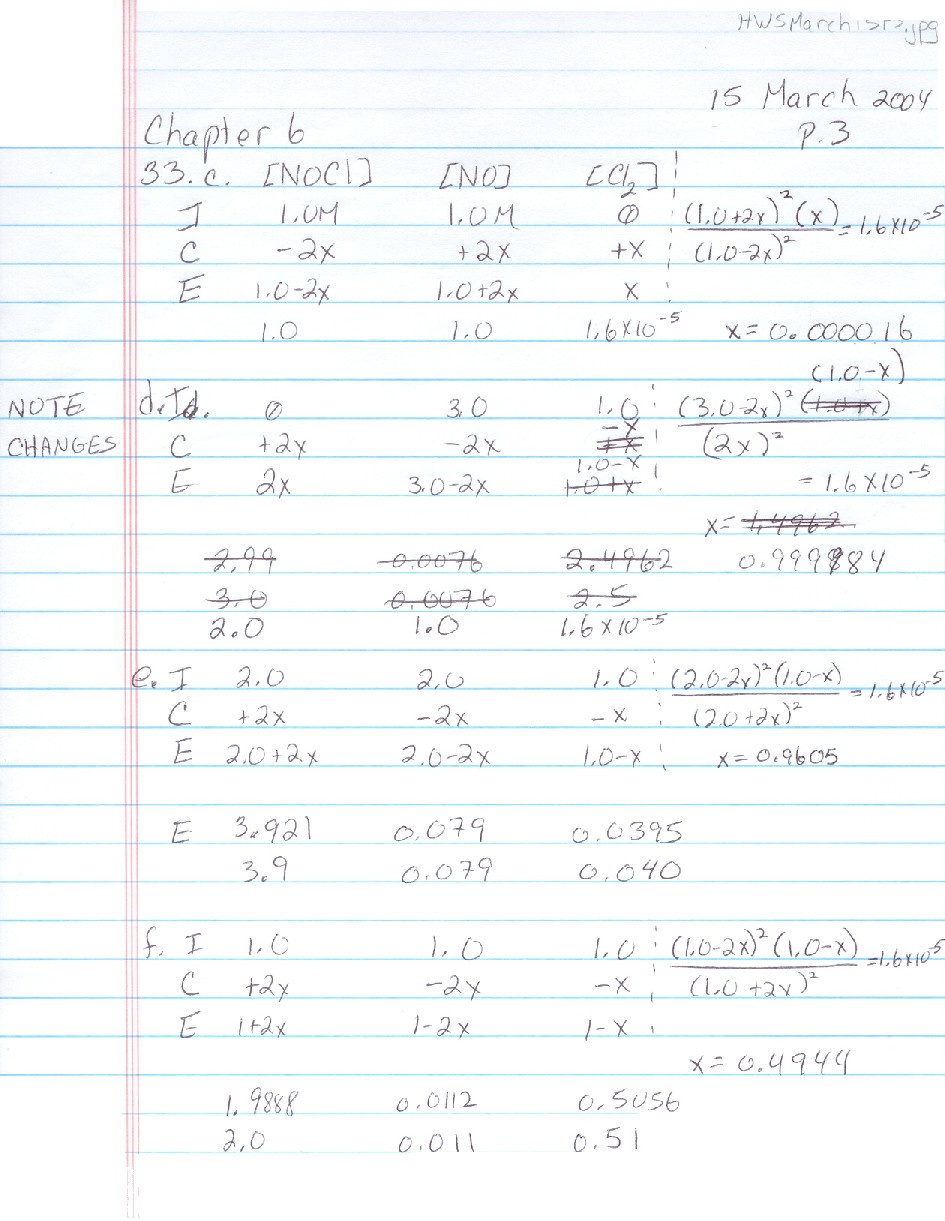 15 March 2004
Chapter 6 P.3
33. c. [NOCl] [NO] [Cl₂]
I 1.0M 1.0M 0 (1.0+2x)²(x) / (1.0-2x)² = 1.6x10⁻⁵
C -2x +2x +x
E 1.0-2x 1.0+2x x
1.0 1.0 1.6x10⁻⁵ x = 0.000016
NOTE CHANGES
d. I 0 3.0 1.0 (3.0-2x)² (1.0-x) / (2x)²
C +2x -2x -x
E 2x 3.0-2x 1.0-x = 1.6x10⁻⁵
1.0+x
x = 1.4962
2.99 0.0076 2.4962 0.999984
3.0 0.0076 2.5
2.0 1.0 1.6x10⁻⁵
e. I 2.0 2.0 1.0 (2.0-2x)²(1.0-x) / (2.0+2x)² = 1.6x10⁻⁵
C +2x -2x -x
E 2.0+2x 2.0-2x 1.0-x x = 0.9605
E 3.921 0.079 0.0395
3.9 0.079 0.040
f. I 1.0 1.0 1.0 (1.0-2x)² (1.0-x) / (1.0+2x)² = 1.6x10⁻⁵
C +2x -2x -x
E 1+2x 1-2x 1-x
x = 0.4944
1.9888 0.0112 0.5056
2.0 0.011 0.51